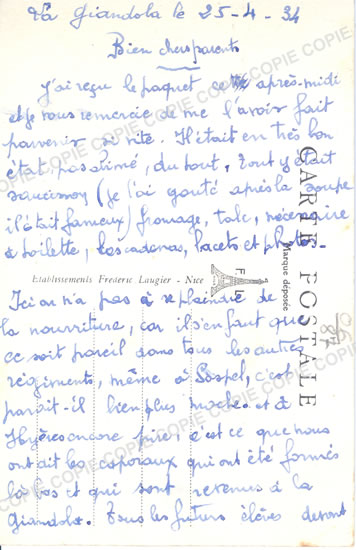 La Giandola le 25-4-34
Bien chers parents
J'ai reçu le paquet ce après-midi
et je vous remercie de me l'avoir fait
parvenir si vite. Il était en très bon
état, pas abimé, du tout, tout y était
saucisson (je l'ai gouté après la soupe
il était fameux) fromage, talc, nécessaire
à toilette, les cadenas, lacets et photo.
CARTE POSTALE
Marque déposée
Etablissements Frédéric Laugier - Nice
F L
Ici on n'a pas à se plaindre de
la nourriture, car il s'en faut que
ce soit pareil dans tous les autres
régiments, même à Sospel, c'est
parait-il bien plus moche. et à
Hyères encore pire, c'est ce que nous
ont dit les caporaux qui ont été formés
là bas et qui sont revenus à la
Giandola. Tous les futurs élèves devront
COPIE COPIE COPIE COPIE